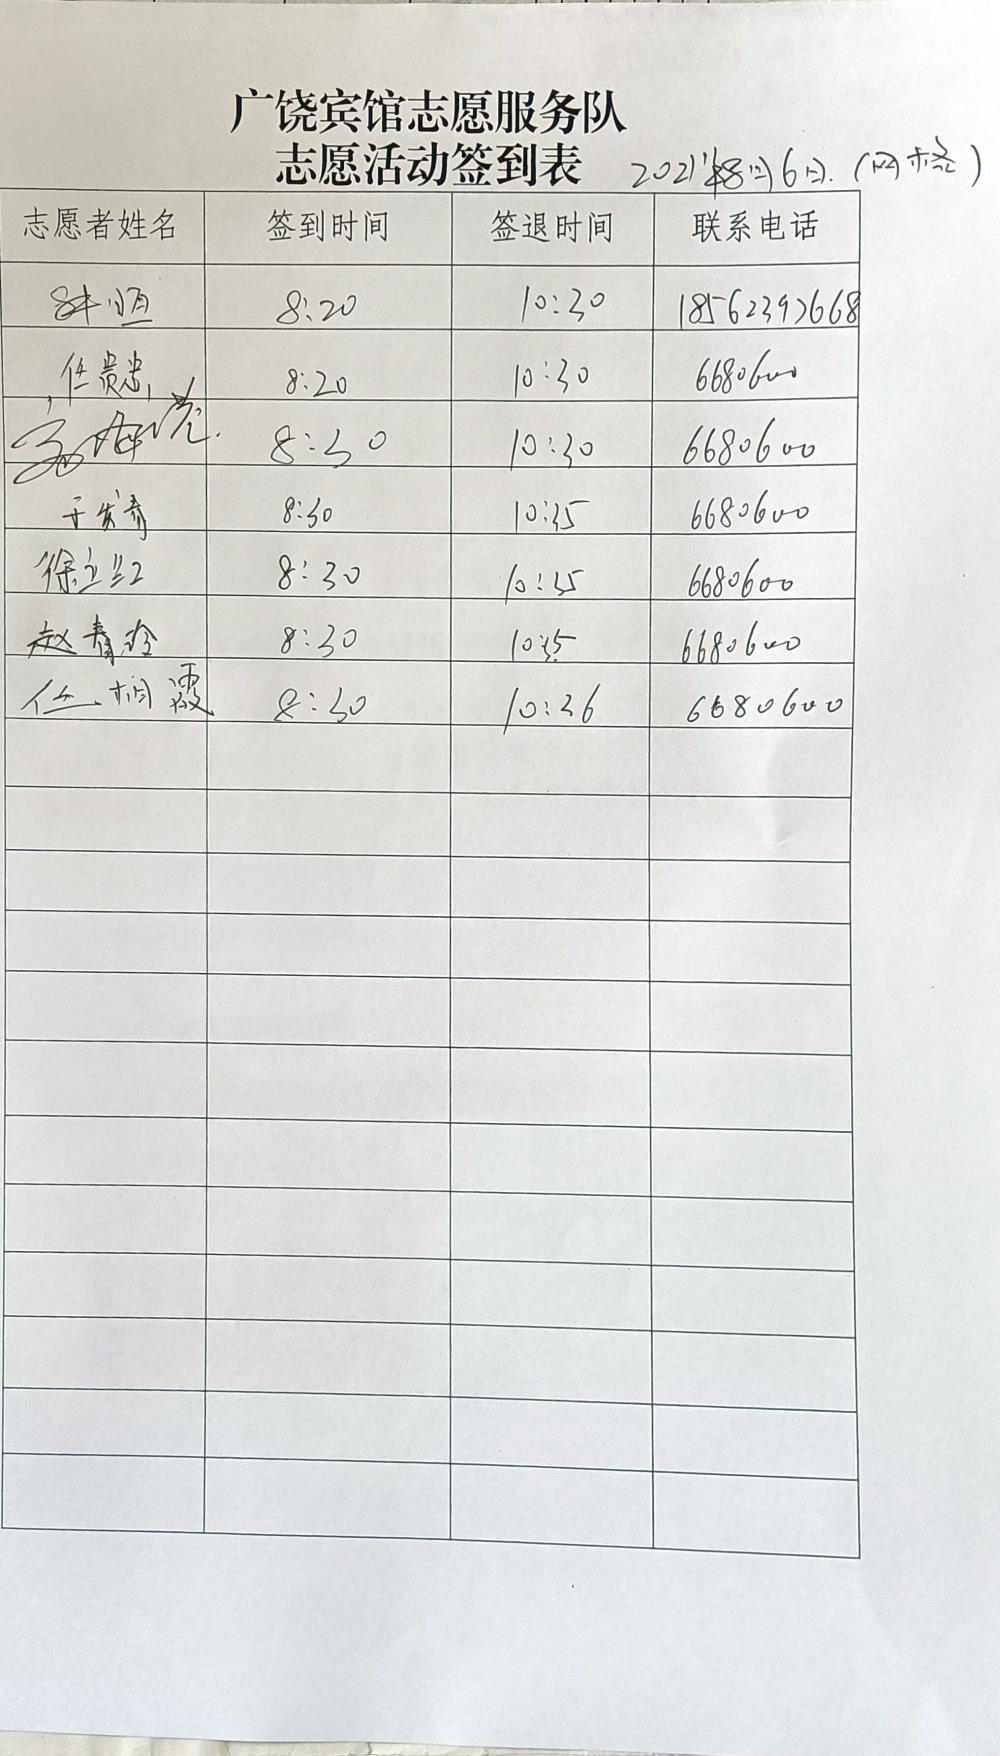 广饶宾馆志愿服务队
志愿活动签到表 2021年8月6日.(网格)
志愿者姓名 签到时间 签退时间 联系电话
8:20 10:30 18562392668
任贵忠 8:20 10:30 6680600
8:30 10:30 6680600
于发青 8:30 10:35 6680600
徐立红 8:30 10:35 6680600
赵青玲 8:30 10:35 6680600
任桐霞 8:30 10:36 6680600